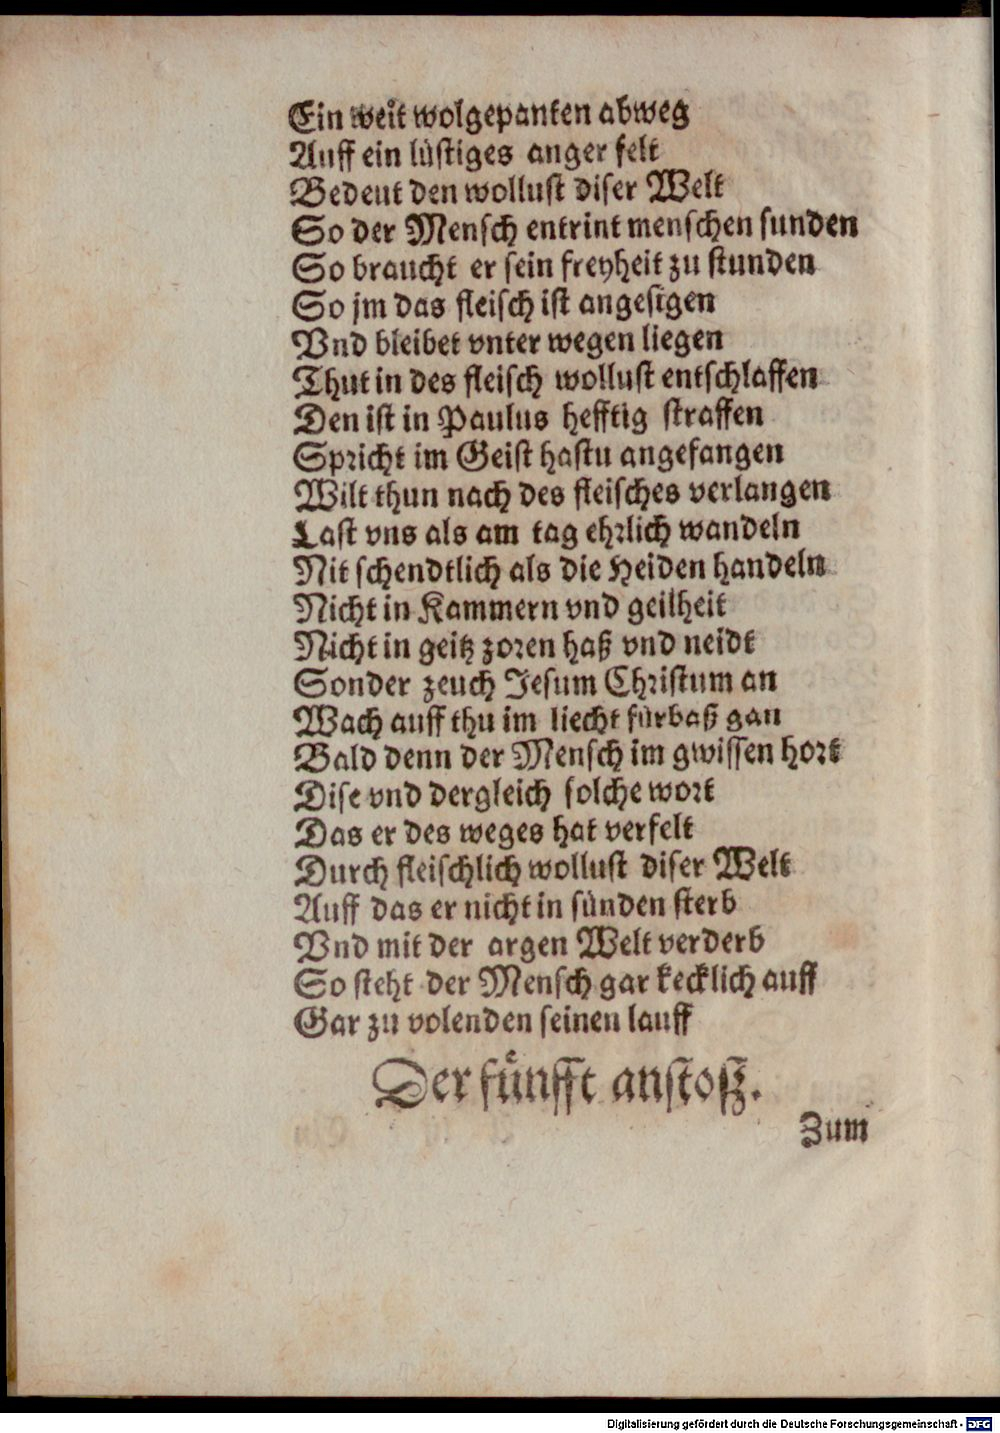 Ein weit wolgepanten abweg
Auff ein lüstiges anger felt
Bedeut den wollust diser Welt
So der Mensch entrint menschen sunden
So braucht er sein freyheit zu stunden
So jm das fleisch ist angesigen
Vnd bleibet vnter wegen liegen
Thut in des fleisch wollust entschlaffen
Den ist in Paulus hefftig straffen
Spricht im Geist hastu angefangen
Wilt thun nach des fleisches verlangen
Last vns als am tag ehrlich wandeln
Nit schendtlich als die Heiden handeln
Nicht in Kammern vnd geilheit
Nicht in geitz zoren haß vnd neidt
Sonder zeuch Jesum Christum an
Wach auff thu im liecht fürbaß gan
Bald denn der Mensch im gwissen hort
Dise vnd dergleich solche wort
Das er des weges hat verfelt
Durch fleischlich wollust diser Welt
Auff das er nicht in sünden sterb
Vnd mit der argen Welt verderb
So steht der Mensch gar kecklich auff
Gar zu volenden seinen lauff
Der fünfft anstosz.
Zum
Digitalisierung gefördert durch die Deutsche Forschungsgemeinschaft - DFG